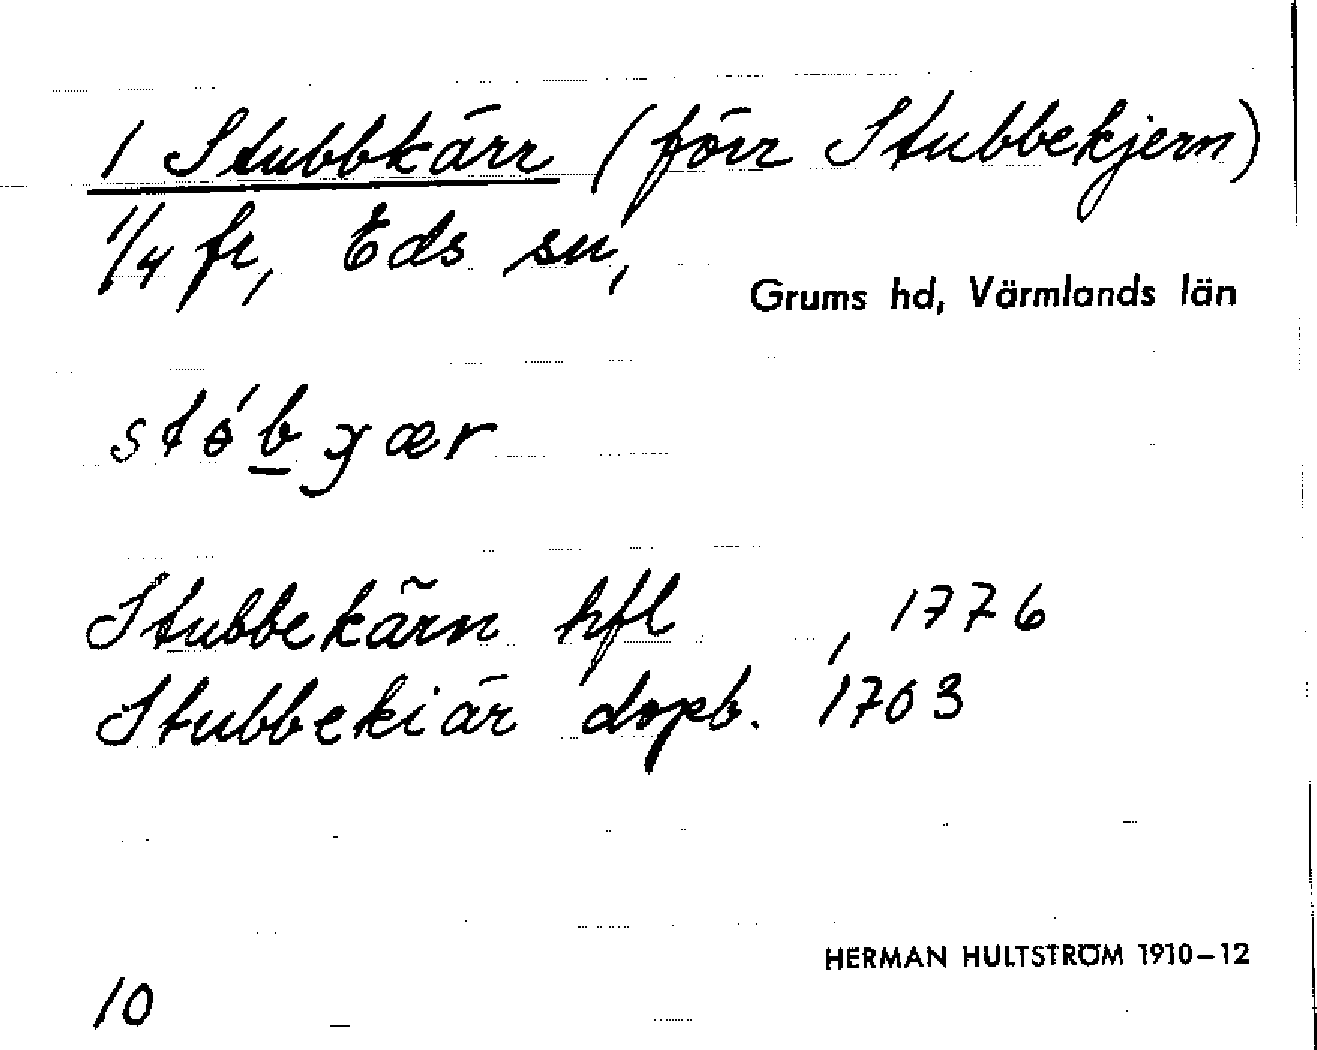 1 Stubbkärr (förr Stubbekjern)
1/4 fr, Eds sn,
Grums hd, Värmlands län
stǿb̲gær
Stubbekärn hfl , 1776
Stubbekiär dopb. 1703
HERMAN HULTSTRÖM 1910–12
10